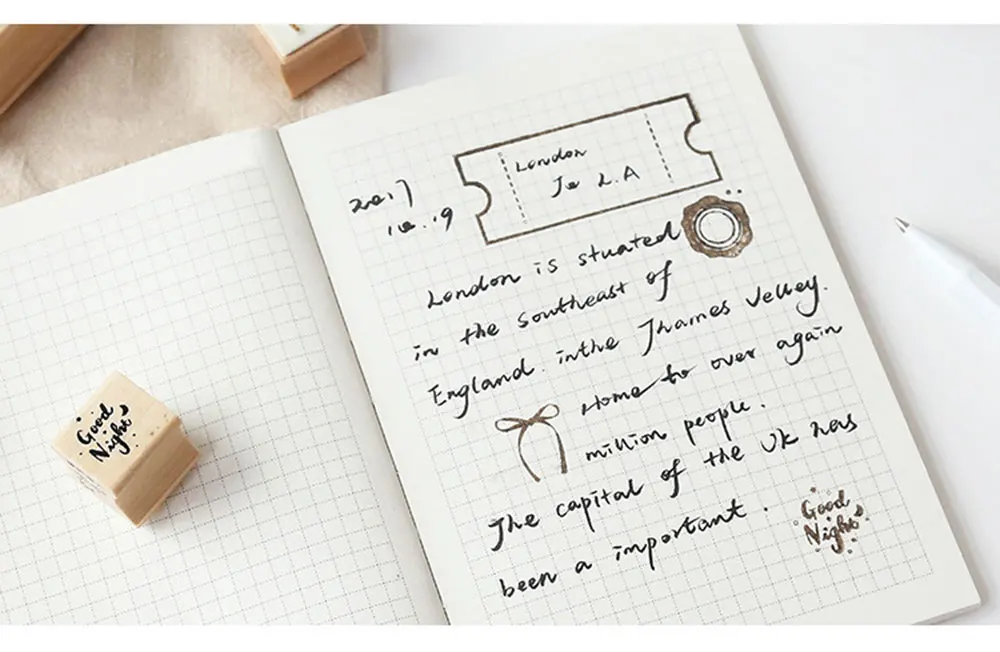 London
To L.A
2017
10.19
London is stuated
in the southeast of
England. inthe Thames Velley.
Home to over again
million people.
The capital of the UK has
been a important.
Good
Night
Good
Night